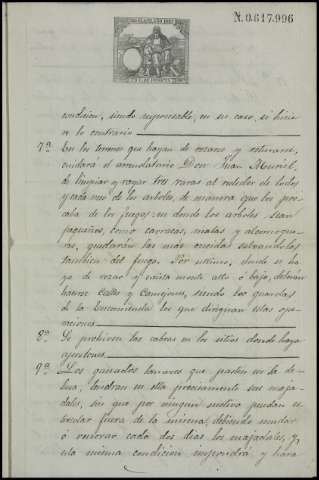 N. 0.617.996
condicion, siendo responsable, en su caso, si hiciere
lo contrario
7ª En los terrenos que hayan de rozarse y roturarse,
cuidará el arrendatario Don Juan Muriel,
de limpiar y rayar tres varas al rededor de todos
y cada uno de los arboles, de manera que los pre-
caba de los fuegos: en donde los arboles sean
pequeños, como carrascas, matas y alcornoques,
quedarán las más cuidadas salvandolas
tambien del fuego. Por ultimo, donde se ha-
ya de rozar y exista monte alto ó bajo, deberán
hacerse calles y camejones, siendo los guardas
de la Encomienda los que dirijan estas ope-
raciones
8ª Se prohiben las cabras en los sitios donde haya
apostones
9ª Los ganados lanares que pasten en la de-
hesa, tendran en ella precisamente sus maja-
dales, sin que por ningun motivo puedan es-
tercolar fuera de la misma, debiendo mudar
ó renovar cada dos dias los majadales, y
esta misma condicion impondrá, y hará